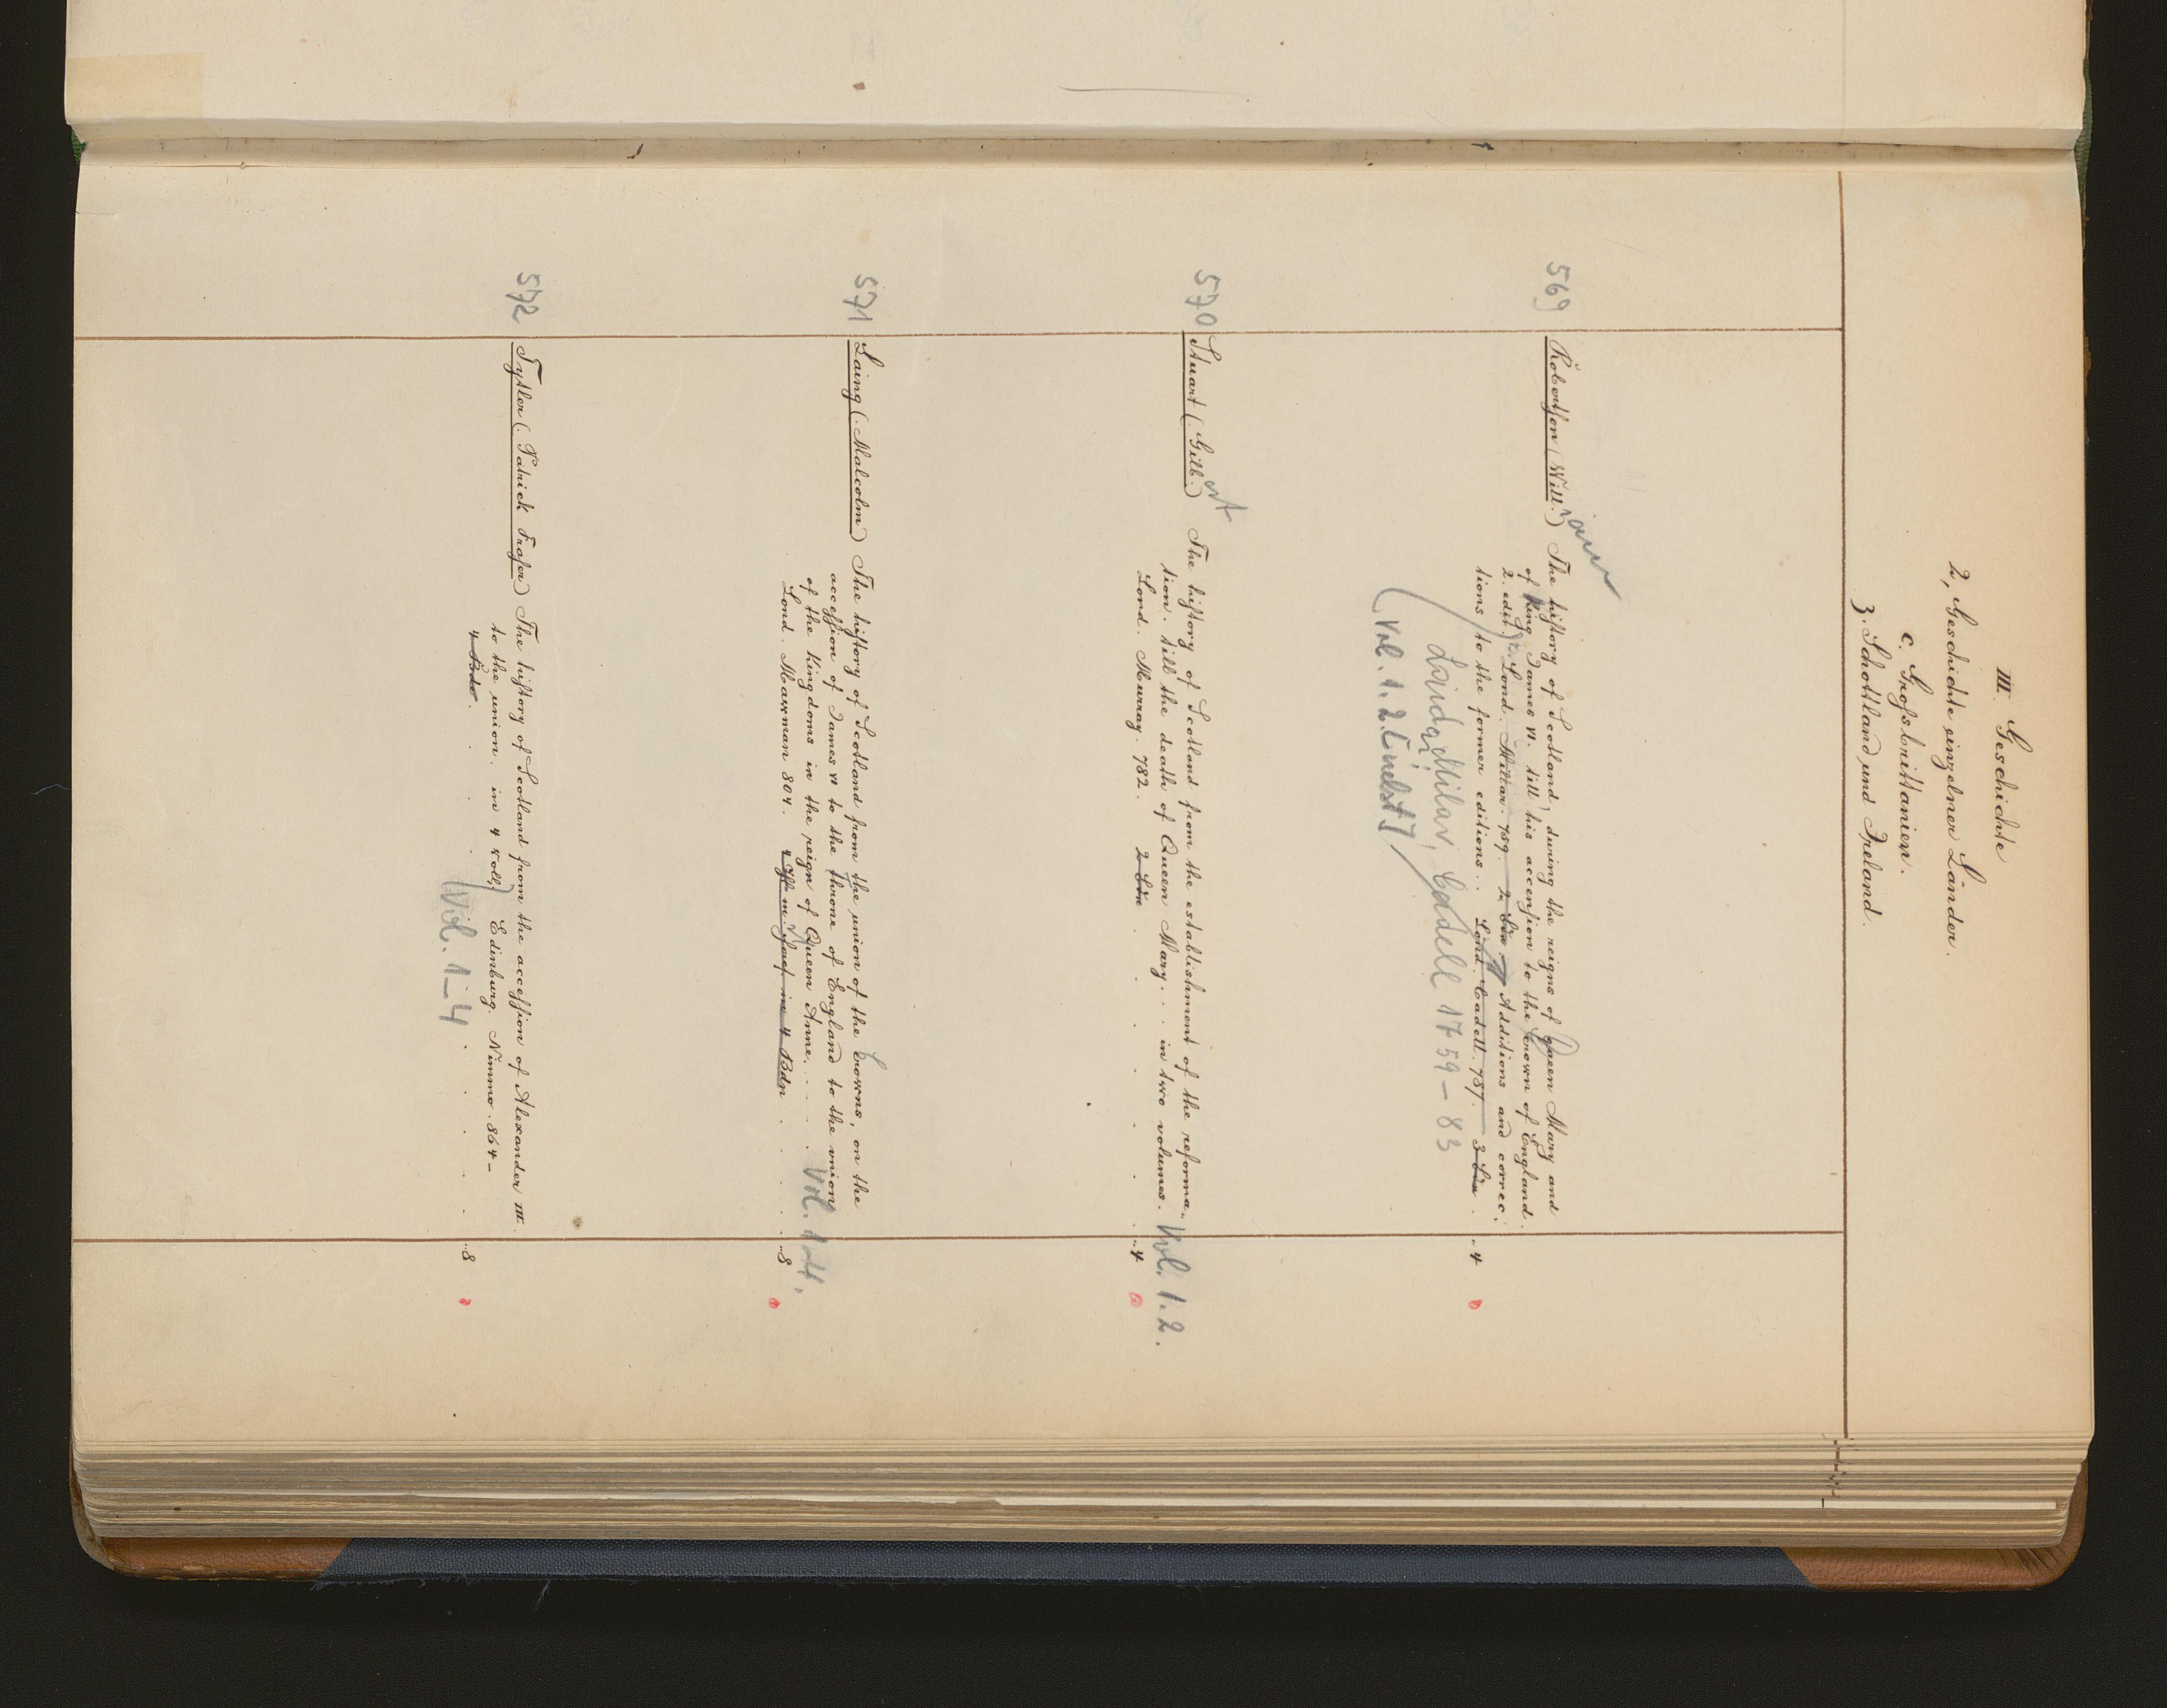 III. Geschichte
2, Geschichte einzelner Länder.
c. Grosbrittanien.
3. Schottland und Ireland.
569 Robertson (Will.iam) The history of Scotland, during the reigns of Queen Mary and
of King James VI. till his accension to the Crown of England.
2. edit. Lond. Millar. 759. 2 Bde Additions and correc,
tions to the former editions.. Lond. Cadell. 787. 3 Bde . . 4
Millar, Cadell 1759-83
(Vol. 1.2.
570 Stuart (Gilb.ert) The history of Scotland from the establishment of the reforma,
tion. till the death of Queen Mary. . . in two volumes. Vol. 1.2.
Lond. Murray. 782. 2 Bde . . . . . . . . 4
571 Laing (Malcolm) The history of Scotland from the union of the Crowns, on the
accession of James VI to the throne of England to the union
of the Kingdoms in the reign of Queen Anne. . . . . Vol. 1-4.
Lond. Mawman 804. in 4 Bdn . . . . . 8
572 Tytler (Patrick Fraser) The history of Scotland from the accession of Alexander III.
to the union. in 4 voll. Edinburg. Nimmo. 864-
4 Bde. . . . . . . . . . 8
(Vol. 1-4